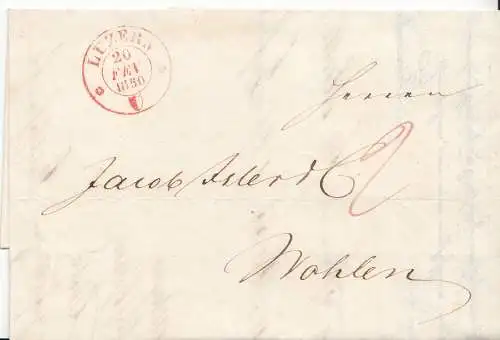 LUZERN
20
FEV
1850
Herren
Jacob Isler & C
2
Wohlen